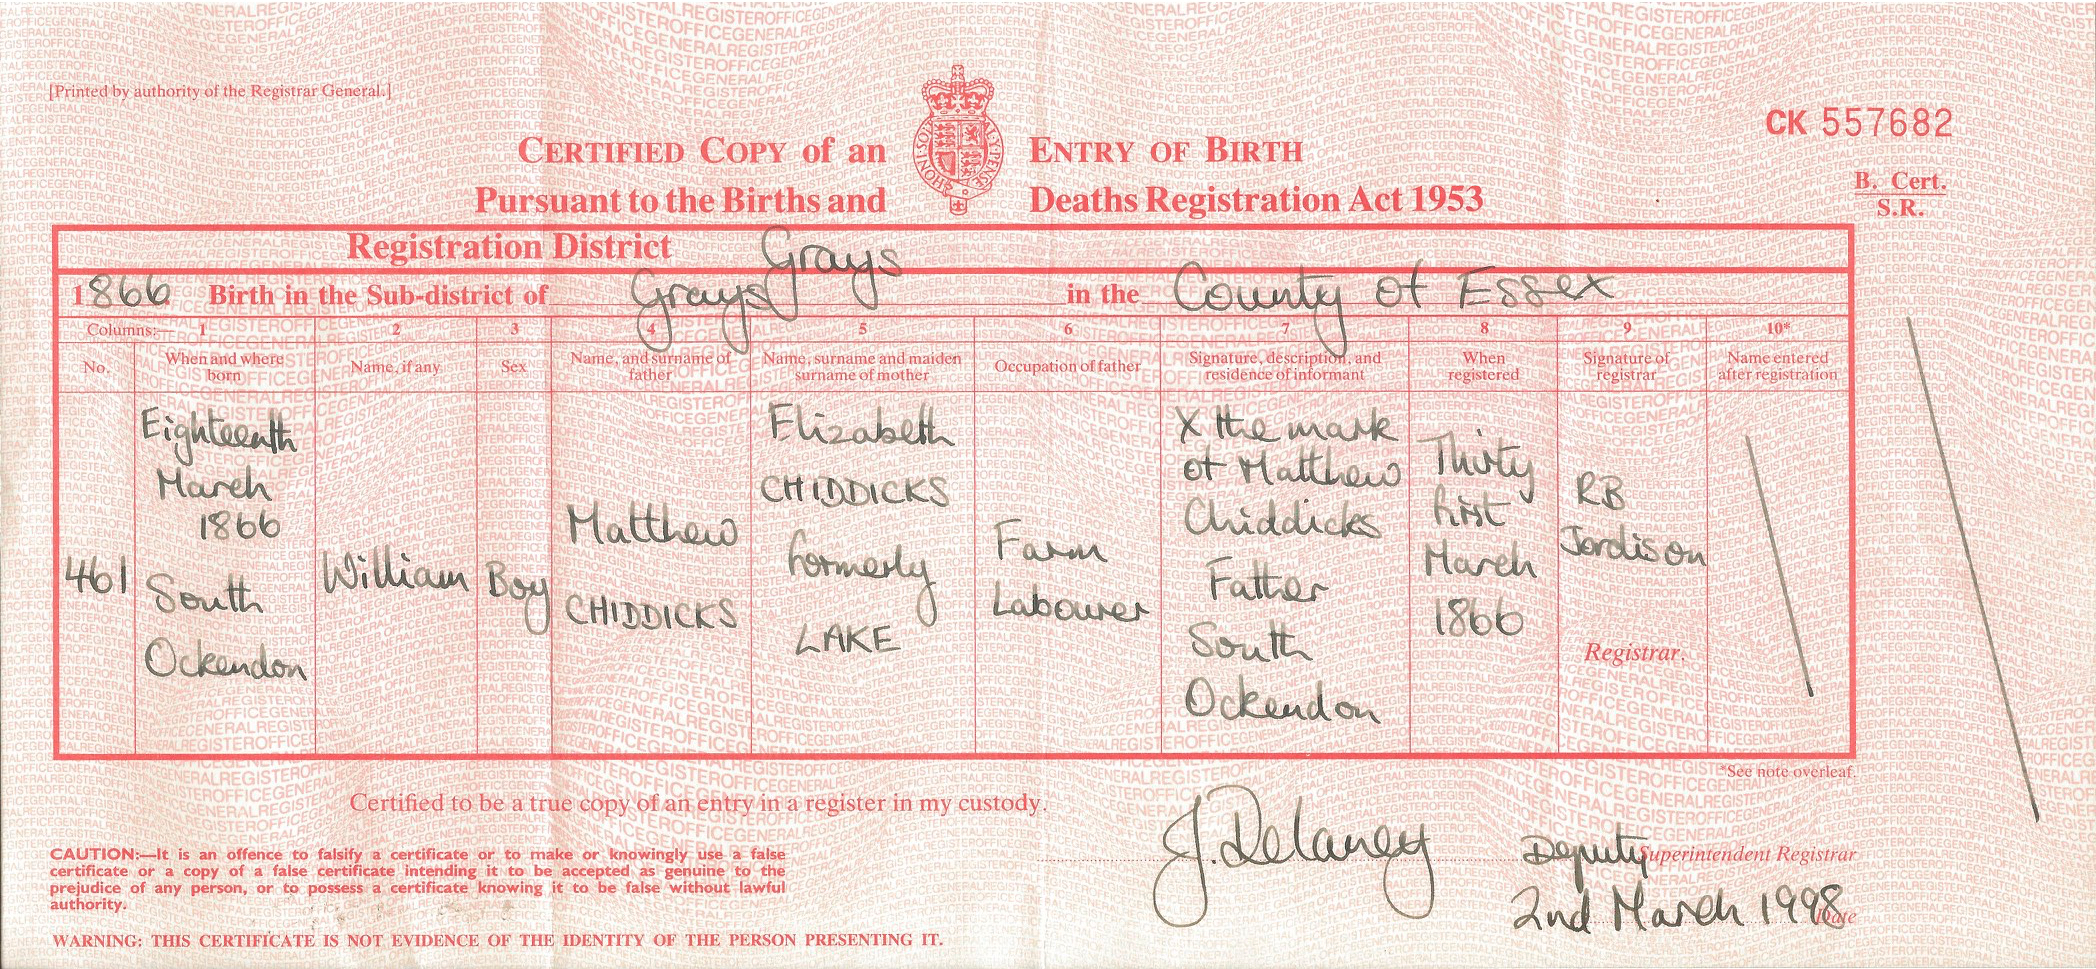 [Printed by authority of the Registrar General.]
CK 557682
B. Cert.
S.R.
CERTIFIED COPY of an ENTRY OF BIRTH
Pursuant to the Births and Deaths Registration Act 1953
HONI·SOIT
Y·PENSE
Registration District Grays
1866 Birth in the Sub-district of Grays in the County of Essex
Columns:— 1 2 3 4 5 6 7 8 9 10*
No.
When and where
born
Name, if any
Sex
Name, and surname of
father
Name, surname and maiden
surname of mother
Occupation of father
Signature, description, and
residence of informant
When
registered
Signature of
registrar
Name entered
after registration
461
Eighteenth
March
1866
South
Ockendon
William
Boy
Matthew
CHIDDICKS
Elizabeth
CHIDDICKS
formerly
LAKE
Farm
Labourer
X the mark
of Matthew
Chiddicks
Father
South
Ockendon
Thirty
first
March
1866
RB
Jordison
Registrar.
*See note overleaf.
Certified to be a true copy of an entry in a register in my custody.
J. Delaney Deputy Superintendent Registrar
2nd March 1998 Date
CAUTION:—It is an offence to falsify a certificate or to make or knowingly use a false
certificate or a copy of a false certificate intending it to be accepted as genuine to the
prejudice of any person, or to possess a certificate knowing it to be false without lawful
authority.
WARNING: THIS CERTIFICATE IS NOT EVIDENCE OF THE IDENTITY OF THE PERSON PRESENTING IT.